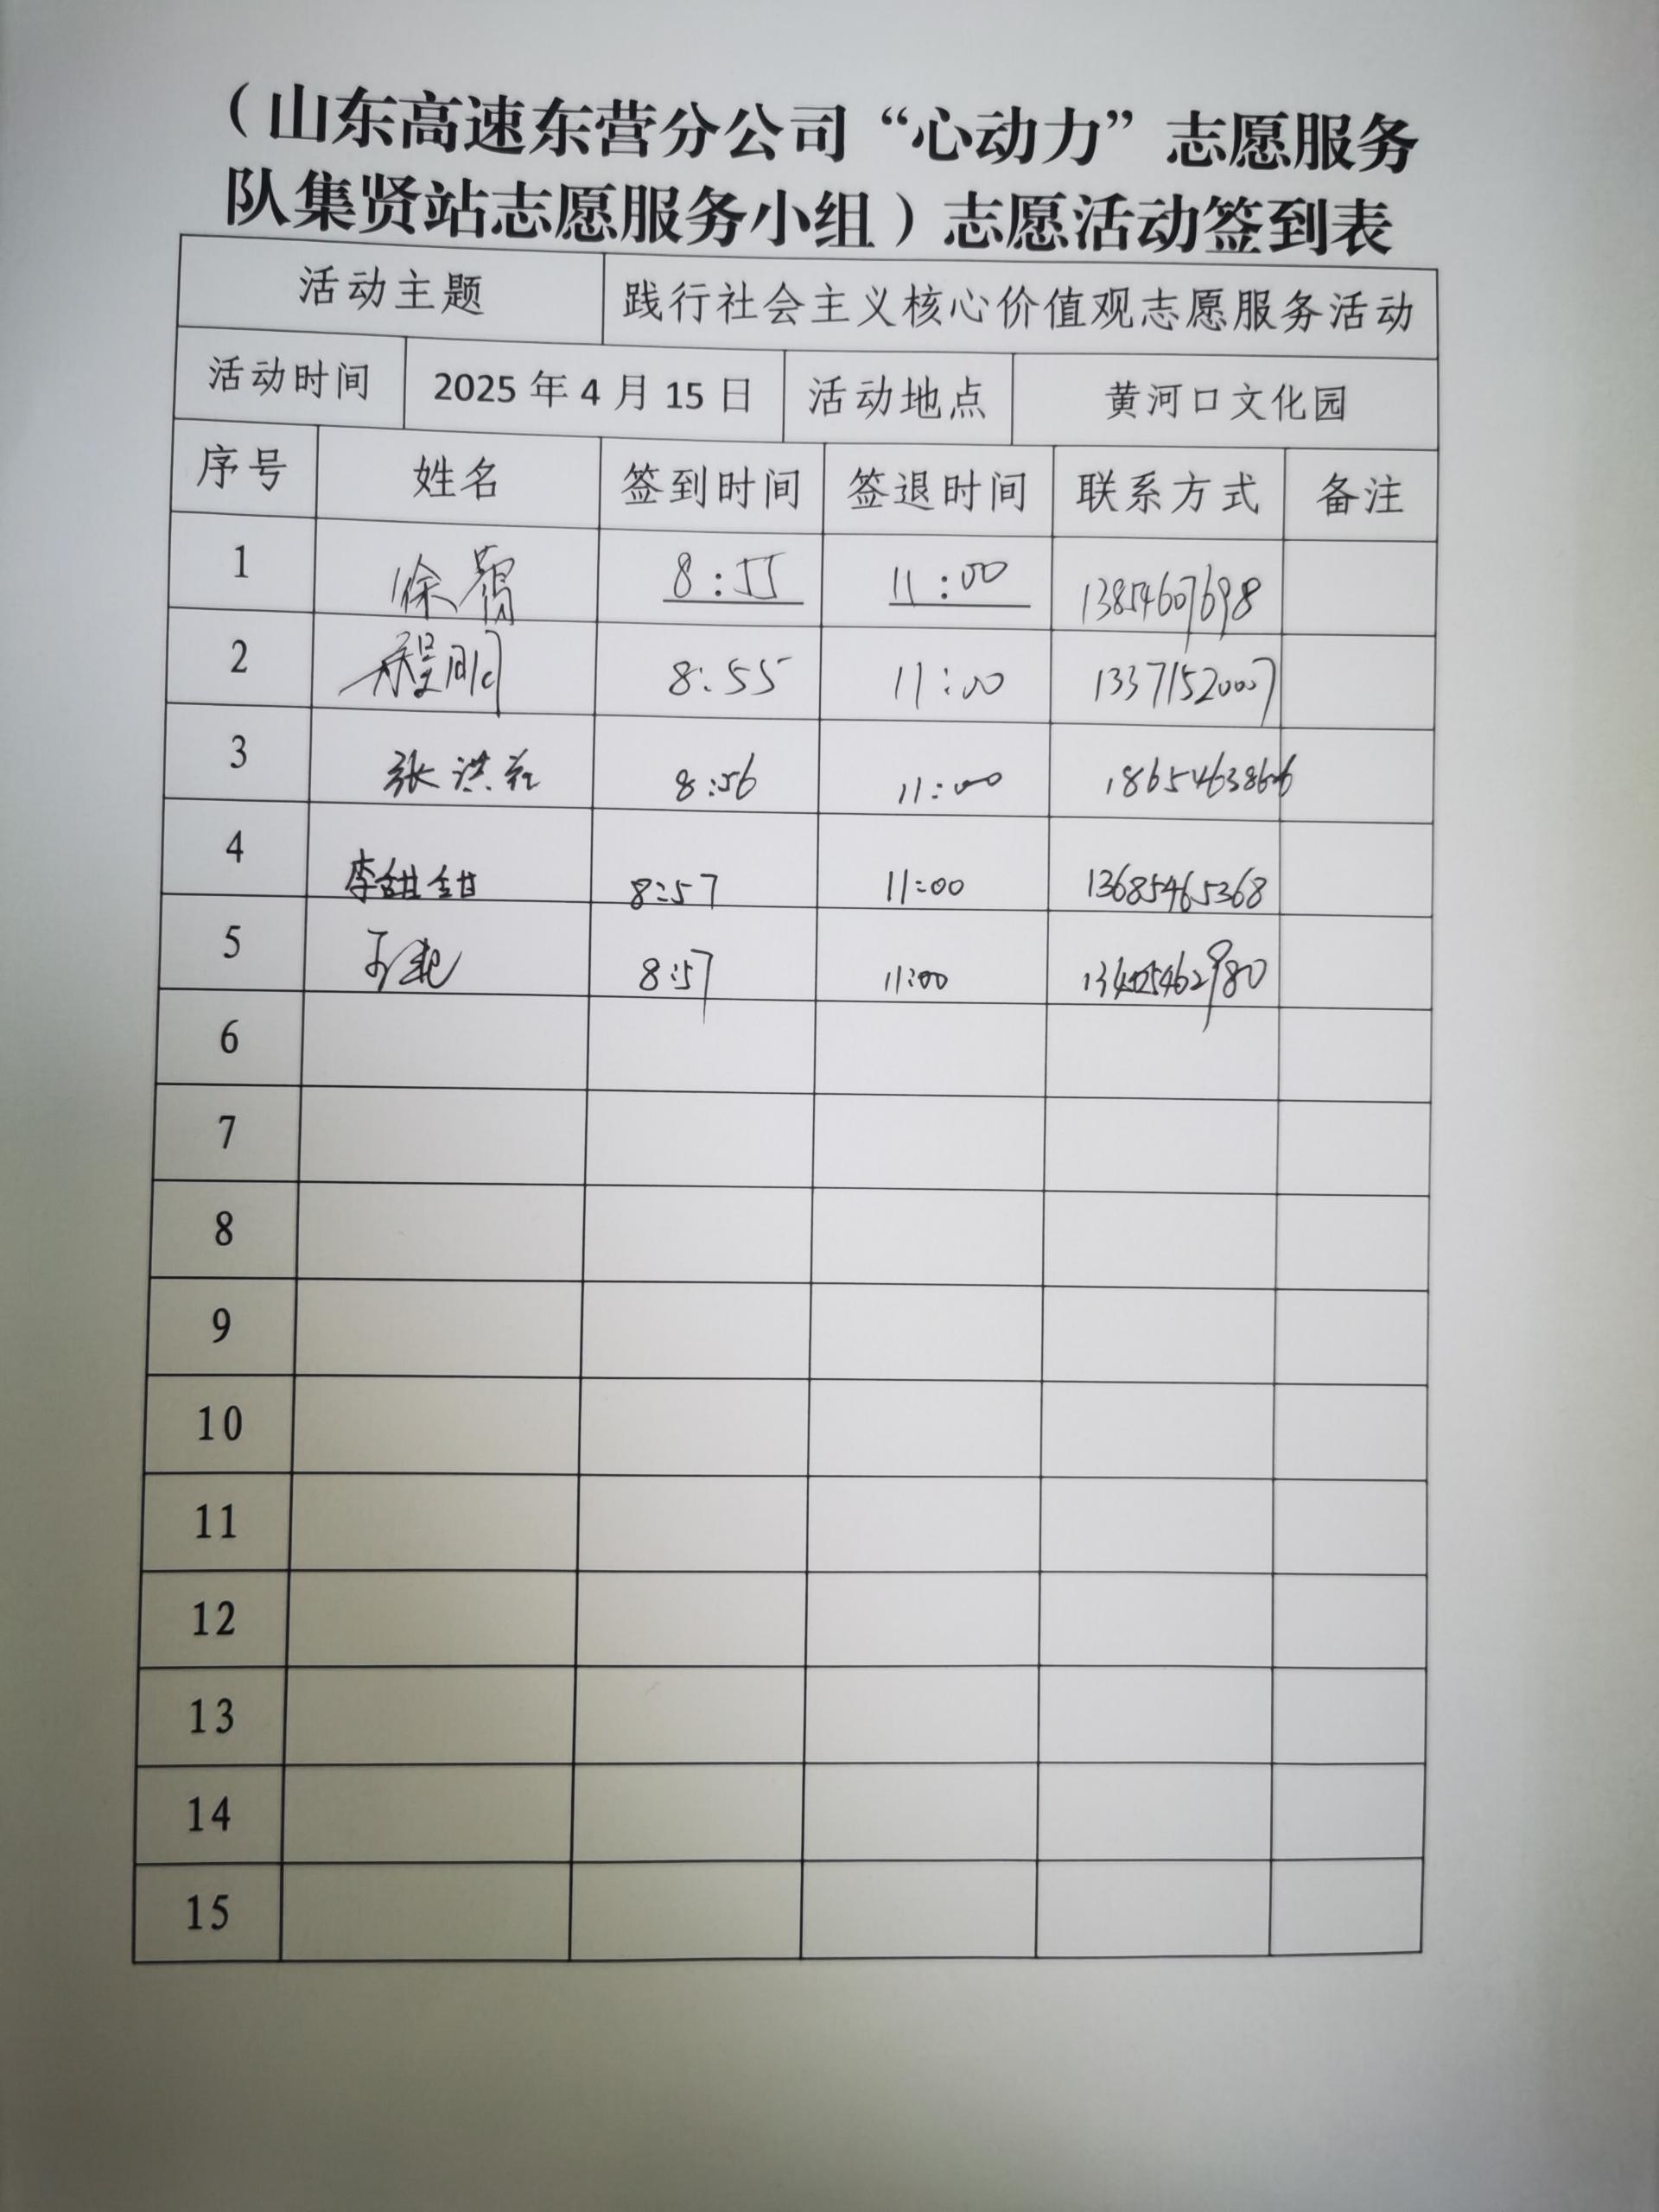 （山东高速东营分公司“心动力”志愿服务
队集贤站志愿服务小组）志愿活动签到表
活动主题 践行社会主义核心价值观志愿服务活动
活动时间 2025年4月15日 活动地点 黄河口文化园
序号 姓名 签到时间 签退时间 联系方式 备注
1 徐 8:55 11:00
2 程刚 8:55 11:00 13371520007
3 张洪 8:56 11:00
4 李甜甜 8:57 11:00 13685465368
5 8:57 11:00
6
7
8
9
10
11
12
13
14
15